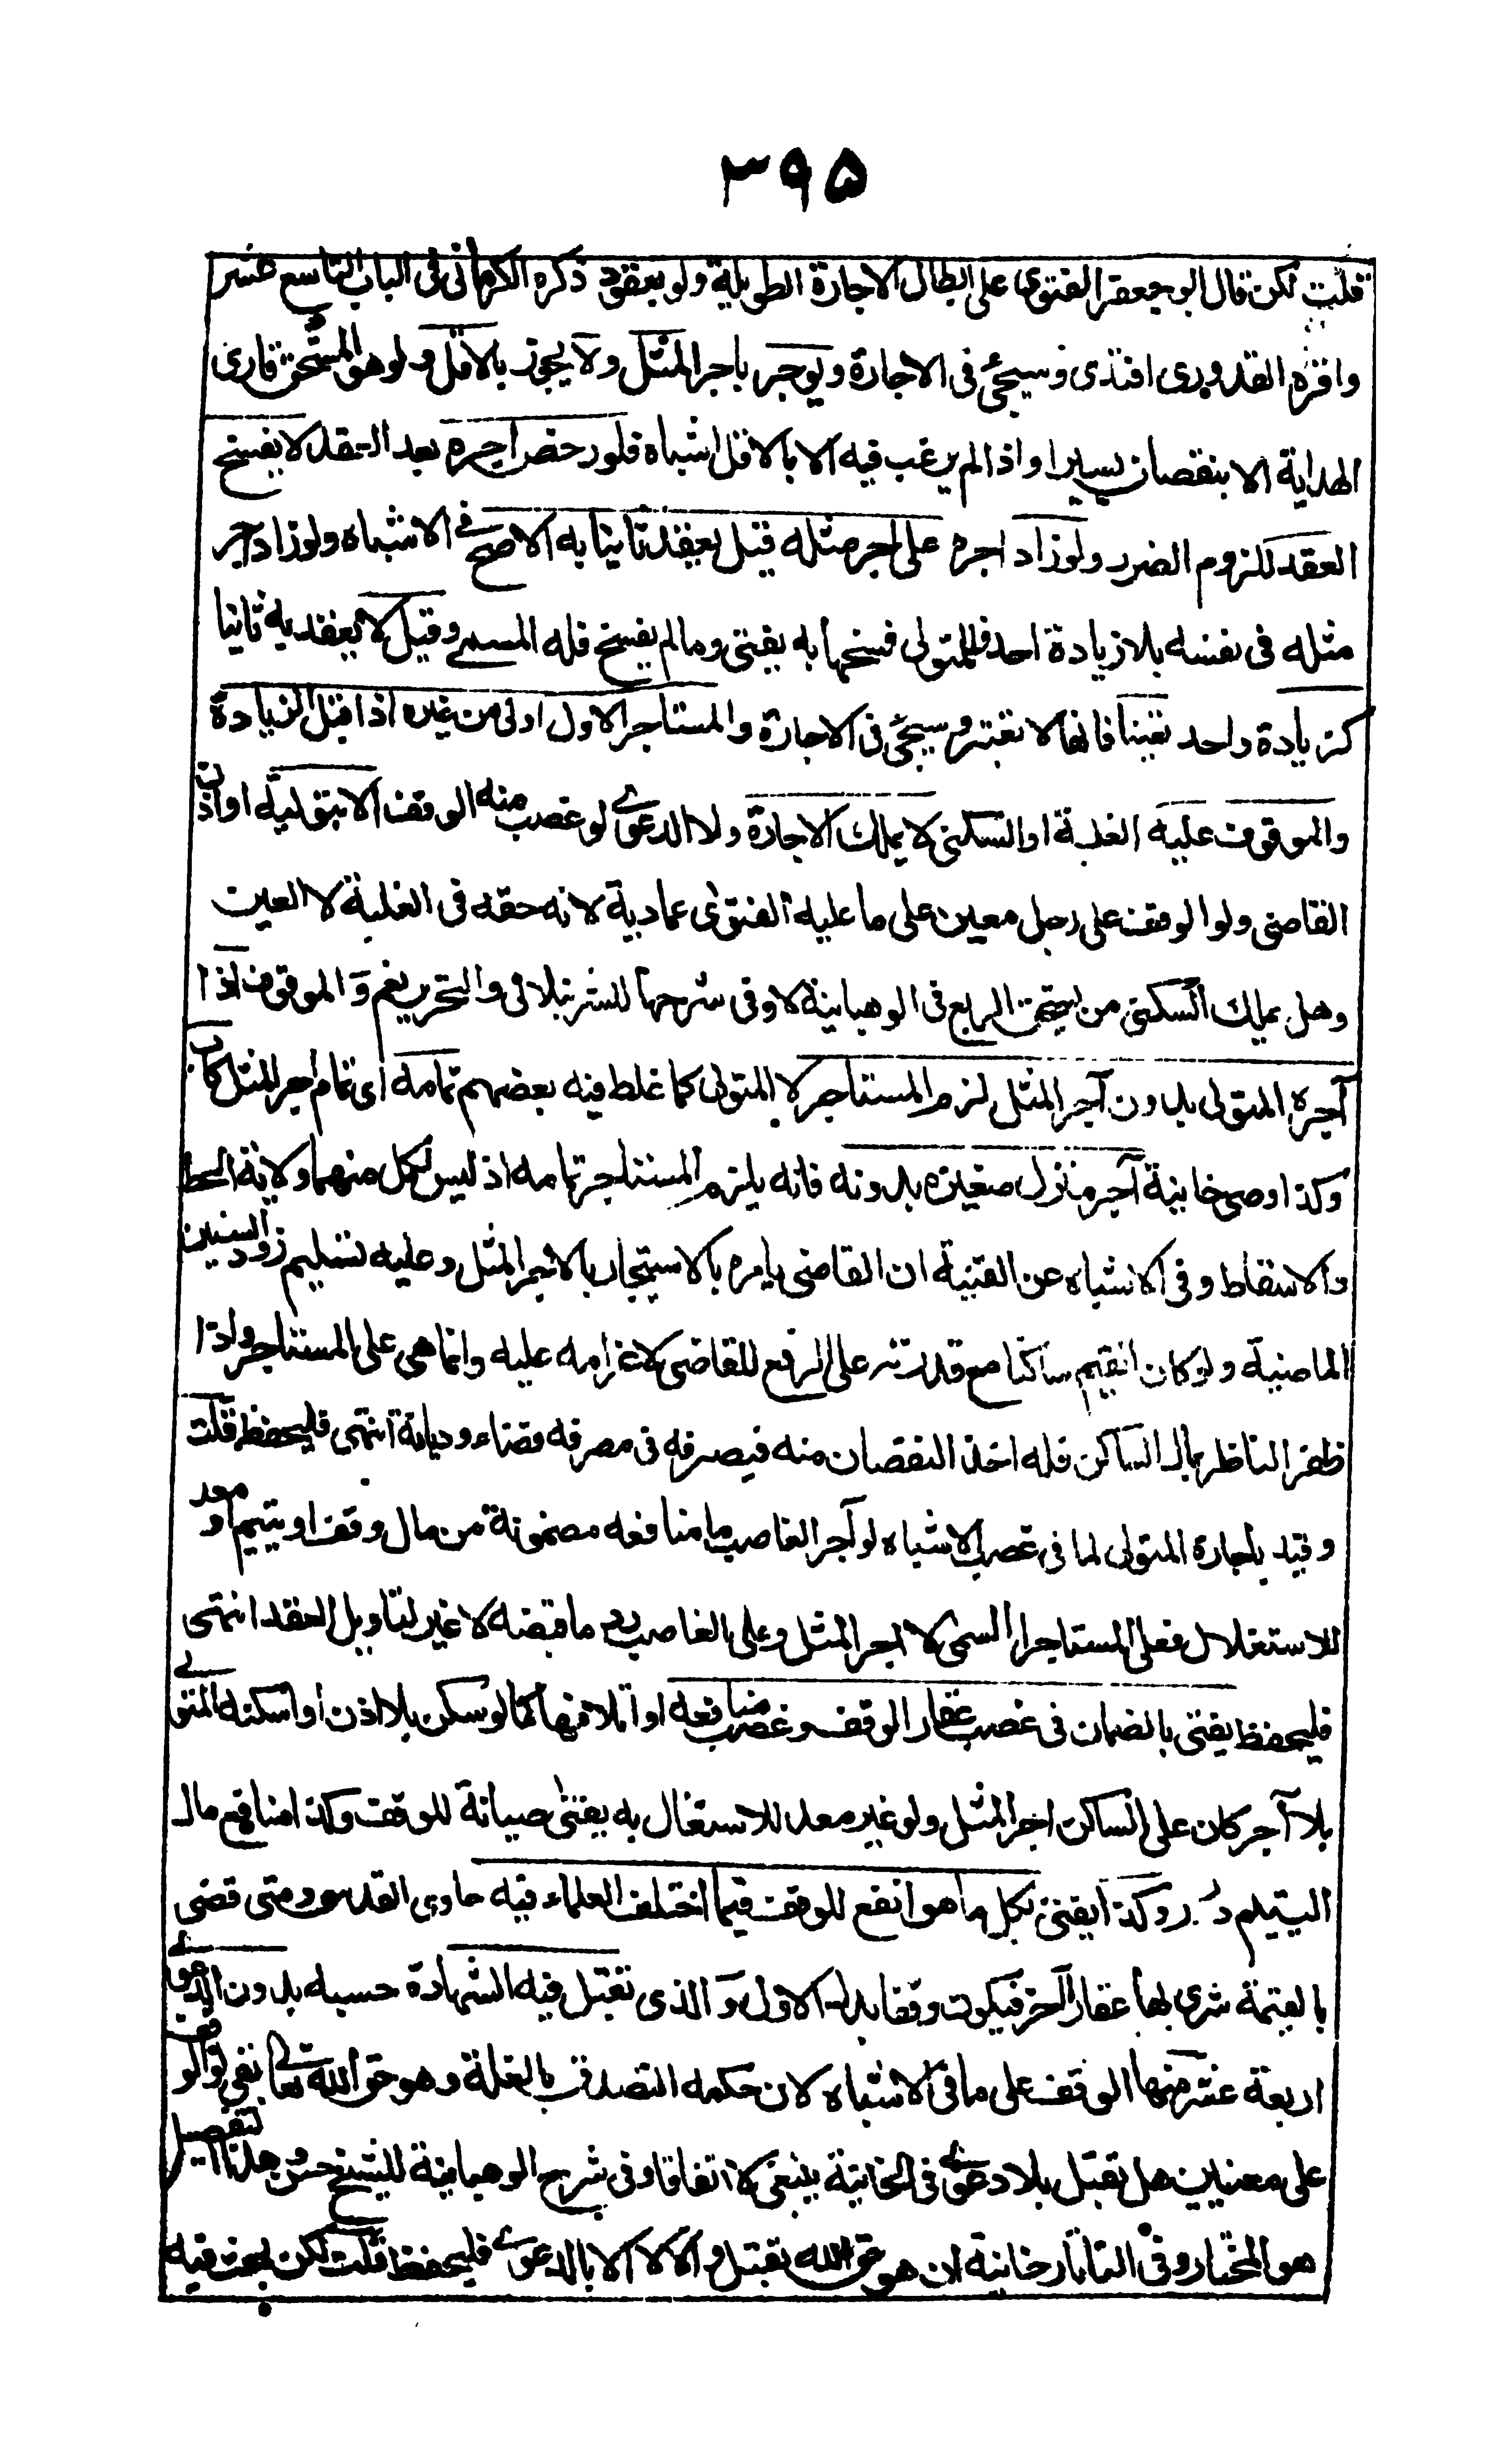 ٣٩٥
قلت لكن قال ابو جعفر الفتوى على ابطال الاجارة الطويلة ولو بعقود ذكره الكرمانى فى الباب التاسع عشر
واقره القدورى افندى وسيجئ فى الاجارة ويوجر باجر المثل ولا يجوز بالاقل ولو هو المستحق قارئ
الهداية الا بنقصان يسير او اذا لم يرغب فيه الا بالاقل اشباه فلو رخص اجره بعد العقد لا يفسخ
العقد للزوم الضرر ولو زاد اجره على اجر مثله قيل يعقد ثانيا به الاصح فى الاشباه ولو زاد اجر
مثله فى نفسه بلا زيادة احد فللمتولى فسخها به يفتى وما لم يفسخ فله المسمى وقيل لا يعقد به ثانيا
كزيادة واحد تعنتا فانها لا تعتبر وسيجئ فى الاجارة والمستاجر الاول اولى من غيره اذا قبل الزيادة
والموقوف عليه الغلة او السكنى لا يملك الاجارة ولا الدعوى لو غصب منه الوقف الا بتولية او اذن
القاضى ولو الوقف على رجل معين على ما عليه الفتوى عمادية لانه حقه فى الغلة لا العين
وهل يملك السكنى من يستحق الريع فى الوهبانية لا وفى شرحها للشرنبلالى والتحرير نعم و الموقوف اذا
آجره المتولى بدون آجر المثل لزم المستاجر لا المتولى كما غلط فيه بعضهم تمامه اى تمام اجر المثل كاب
وكذا وصى خانية آجر منزل صغيره بدونه فانه يلزم المستاجر تمامه اذ ليس لكل منهما ولاية الحط
والاسقاط وفى الاشباه عن القنية ان القاضى يامره بالاستيجار بالاجر المثل وعليه تسليم زود السنين
الماضية ولو كان القيم ساكتا مع قدرته على الرفع للقاضى لا غرامه عليه وانما هى على المستاجر واذا
ظفر الناظر بمال الساكن فله اخذ النقصان منه فيصرفه فى مصرفه قضاء وديانة انتهى فليحفظ قلت
وقيد باجارة المتولى لما فى غصب الاشباه لو آجر الغاصب ما منافعه مضمونة من مال وقف او يتيم او معد
للاستغلال فعلى المستاجر المسمى لا اجر المثل وعلى الغاصب رد ما قبضه لا غير لتاويل العقد انتهى
فليحفظ يفتى بالضمان فى غصب عقار الوقف وغصب منافعه او اتلافها كما لو سكن بلا اذن او اسكنه المتولى
بلا آجر كان على الساكن اجر المثل ولو غير معد للاستغلال به يفتى صيانة للوقف وكذا منافع مال
اليتيم درر وكذا يفتى بكل ما هو انفع للوقف فيما اختلف العلماء فيه حاوى القدسى ومتى قضى
بالقيمة شرى بها عقارا آخر فيكون وقفا بدل الاول و الذى تقبل فيه الشهادة حسبه بدون الدعوى
اربعة عشر منها الوقف على ما فى الاشباه لان حكمه التصدق بالغلة وهو حق الله تعالى بقى لو الوقف
على معنيين هل تقبل بلا دعوى فى الخانية ينبغى لا اتفاقا وفى شرح الوهبانية للشيخ حسن وهذا التفصيل
هو المختار وفى التاتارخانية ان هو حق الله تقبل و الا لا الا بالدعوى فليحفظ قلت لكن بحث فيه